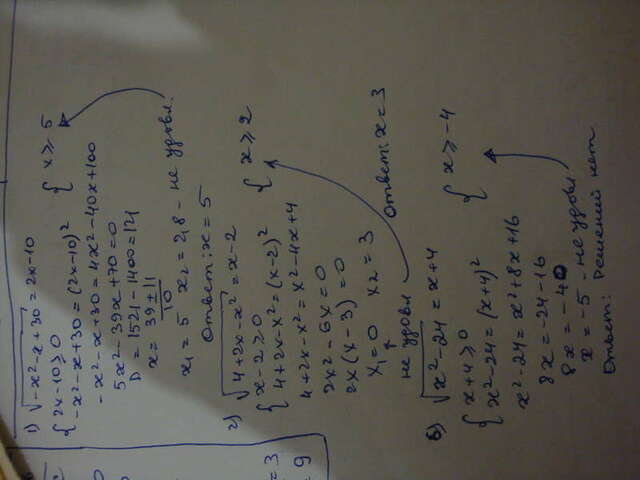 1) √-x²-x+30 = 2x-10
{ 2x-10⩾0
-x²-x+30=(2x-10)² { x⩾5
-x²-x+30=4x²-40x+100
5x²-39x+70=0
D=1521-1400=121
x = 39±11 / 10
x₁=5 x₂=2,8 - не удовл.
Ответ: x=5
2) √4+2x-x² = x-2
{ x-2⩾0
4+2x-x²=(x-2)² { x⩾2
4+2x-x²=x²-4x+4
2x²-6x=0
2x(x-3)=0
x₁=0 x2=3
не удовл Ответ: x=3
в) √x²-24 = x+4
{ x+4⩾0
x²-24=(x+4)² { x⩾-4
x²-24=x²+8x+16
8x=-24-16
8x=-40
x=-5 - не удовл.
Ответ: Решений нет
=3
=9